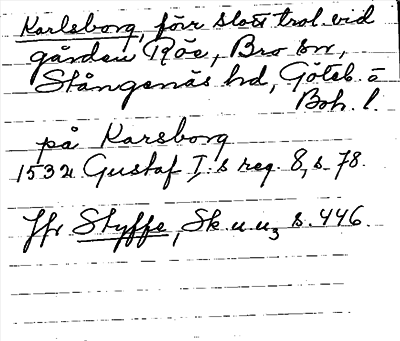 Karlsborg, förr slott trol. vid
gården Röe, Bro sn,
Stångenäs hd, Göteb. o
Boh. l.
på Karsborg
1532 Gustaf I:s reg. 8, s. 78.
Jfr Styffe, Sk. u. u., s. 446.